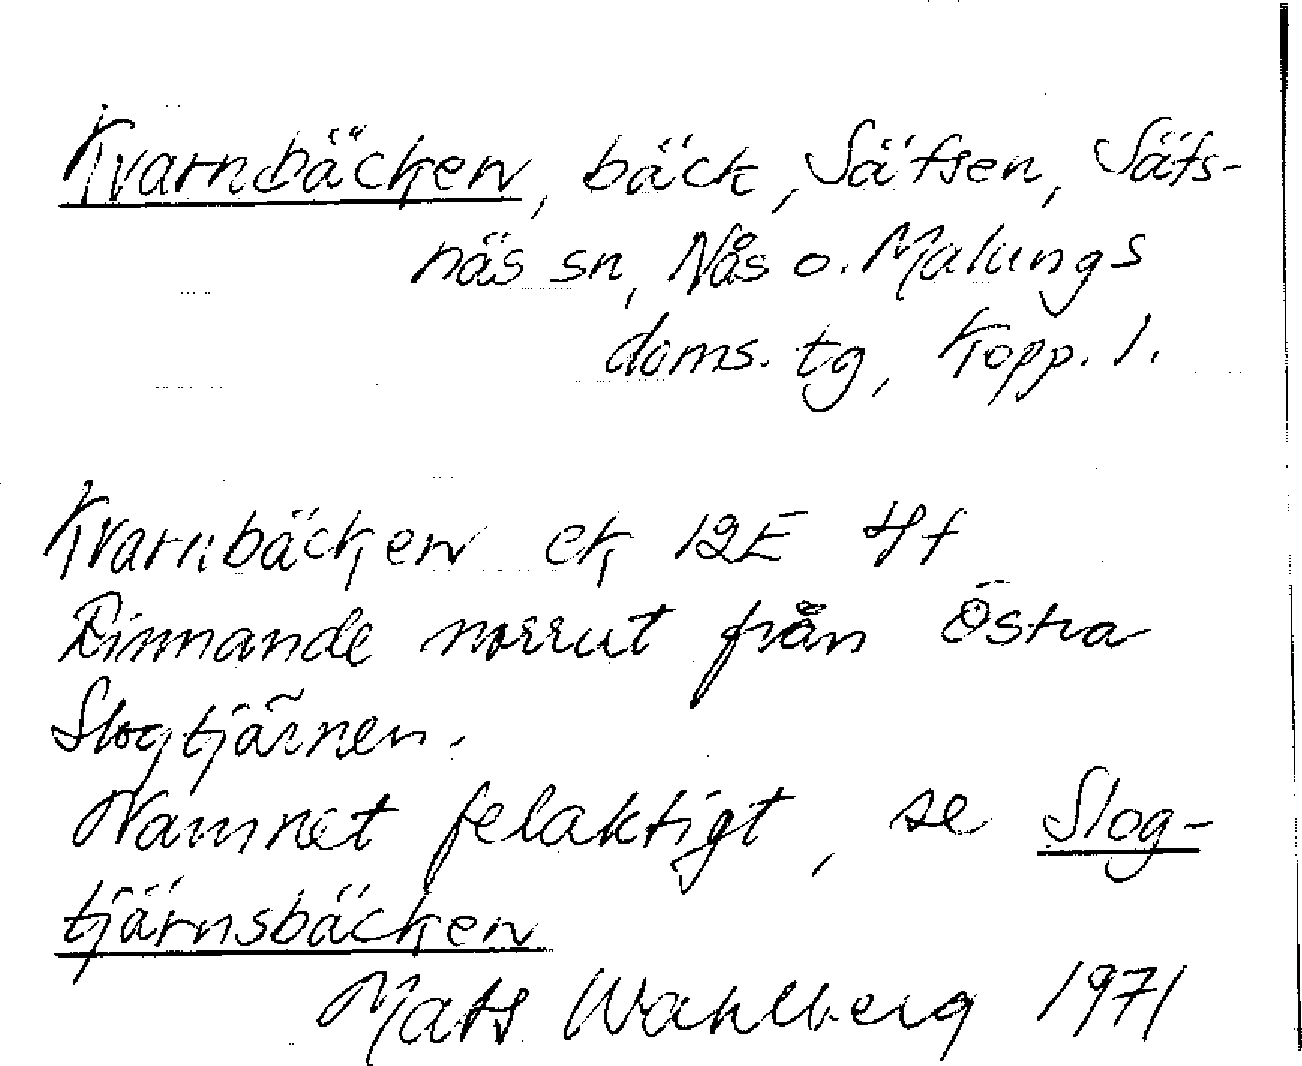 Kvarnbäcken, bäck, Säfsen, Säfs-
näs sn, Nås o. Malungs
doms. tg, Kopp. l.
Kvarnbäcken ek 12E 4f
Rinnande norrut från Östra
Slogtjärnen.
Namnet felaktigt, se Slog-
tjärnsbäcken
Mats Wahlberg 1971